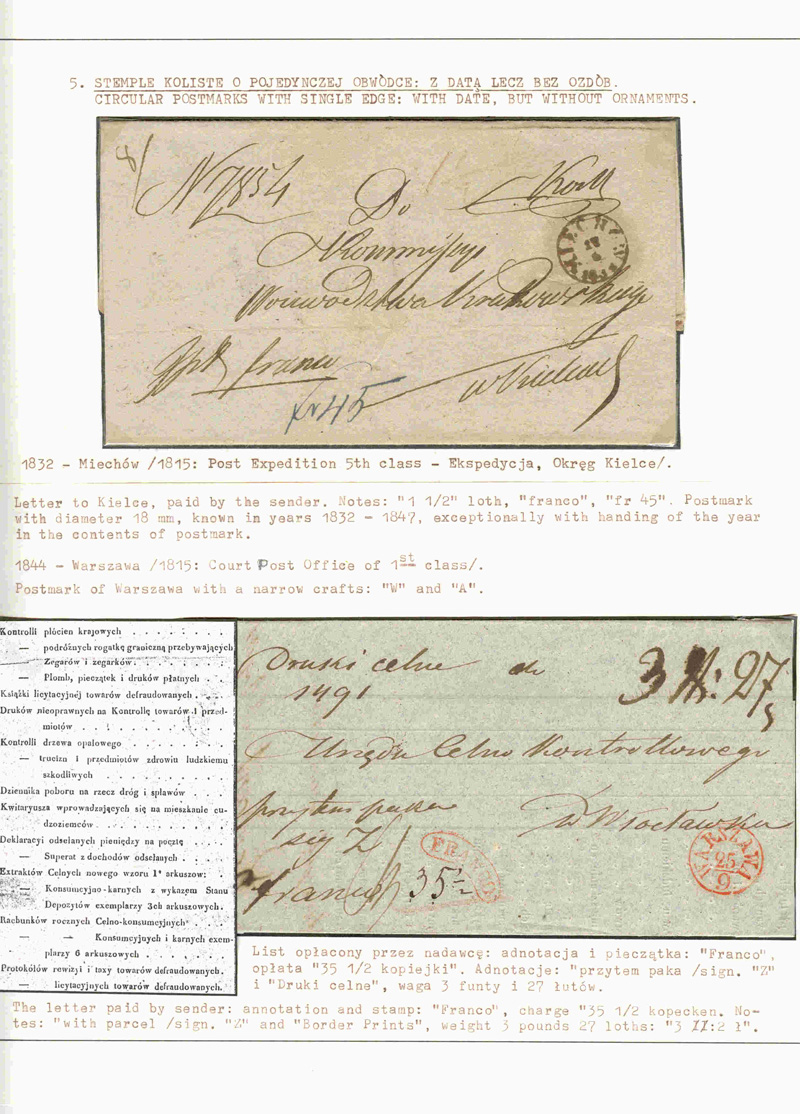 5. STEMPLE KOLISTE O POJEDYNCZEJ OBWÒDCE: Z DATĄ LECZ BEZ OZDÒB.
CIRCULAR POSTMARKS WITH SINGLE EDGE: WITH DATE, BUT WITHOUT ORNAMENTS.
N 7854
Do
Kommissyi
Woiewodztwa Krakowskiego
franco
w Kielcach
45
1832 - Miechów /1815: Post Expedition 5th class - Ekspedycja, Okręg Kielce/.
Letter to Kielce, paid by the sender. Notes: "1 1/2" loth, "franco", "fr 45". Postmark
with diameter 18 mm, known in years 1832 - 1847, exceptionally with handing of the year
in the contents of postmark.
1844 - Warszawa /1815: Court Post Office of 1st class/.
Postmark of Warszawa with a narrow crafts: "W" and "A".
Kontrolli płócien krajowych
— podróżnych rogatkę graniczną przebywających
— Zegarów i zegarków.
— Plomb, pieczątek i druków płatnych
Książki licytacyjnéj towarów defraudowanych
Druków nieoprawnych na Kontrollę towarów i przed-
miotów
Kontrolli drzewa opałowego
— trucizn i przedmiotów zdrowiu ludzkiemu
szkodliwych
Dziennika poboru na rzecz dróg i spławów
Kwitaryusza wprowadzających się na mieszkanie cu-
dzoziemców
Deklaracyi odsełanych pieniędzy na pocztę
— Superat z dochodów odsełanych
Extraktów Celnych nowego wzoru 1° arkuszow:
— Konsumcyjno-karnych z wykazem Stanu
Depozytów exemplarzy 3ch arkuszowych.
Rachunków rocznych Celno-konsumcyjnych
— — Konsumcyjnych i karnych exem-
plarzy 6 arkuszowych
Protokólów rewizyi i taxy towarów defraudowanych.
— licytacyjnych towarów defraudowanych.
Druki celne do
1491
3 ℔: 27
Urzędu Celno Kontrollowego
przytem paka
w Włocławku
sig Z
franco
35
FRANCO
WARSZAWA
25
9
List opłacony przez nadawcę: adnotacja i pieczątka: "Franco",
opłata "35 1/2 kopiejki". Adnotacje: "przytem paka /sign. "Z"
i "Druki celne", waga 3 funty i 27 łutów.
The letter paid by sender: annotation and stamp: "Franco", charge "35 1/2 kopecken. No-
tes: "with parcel /sign. "Z" and "Border Prints", weight 3 pounds 27 loths: "3 ll:2 l".